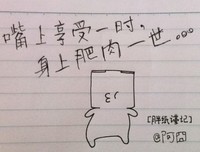 嘴上享受一时，
身上肥肉一世...
[胖纸语记]
@阿囧